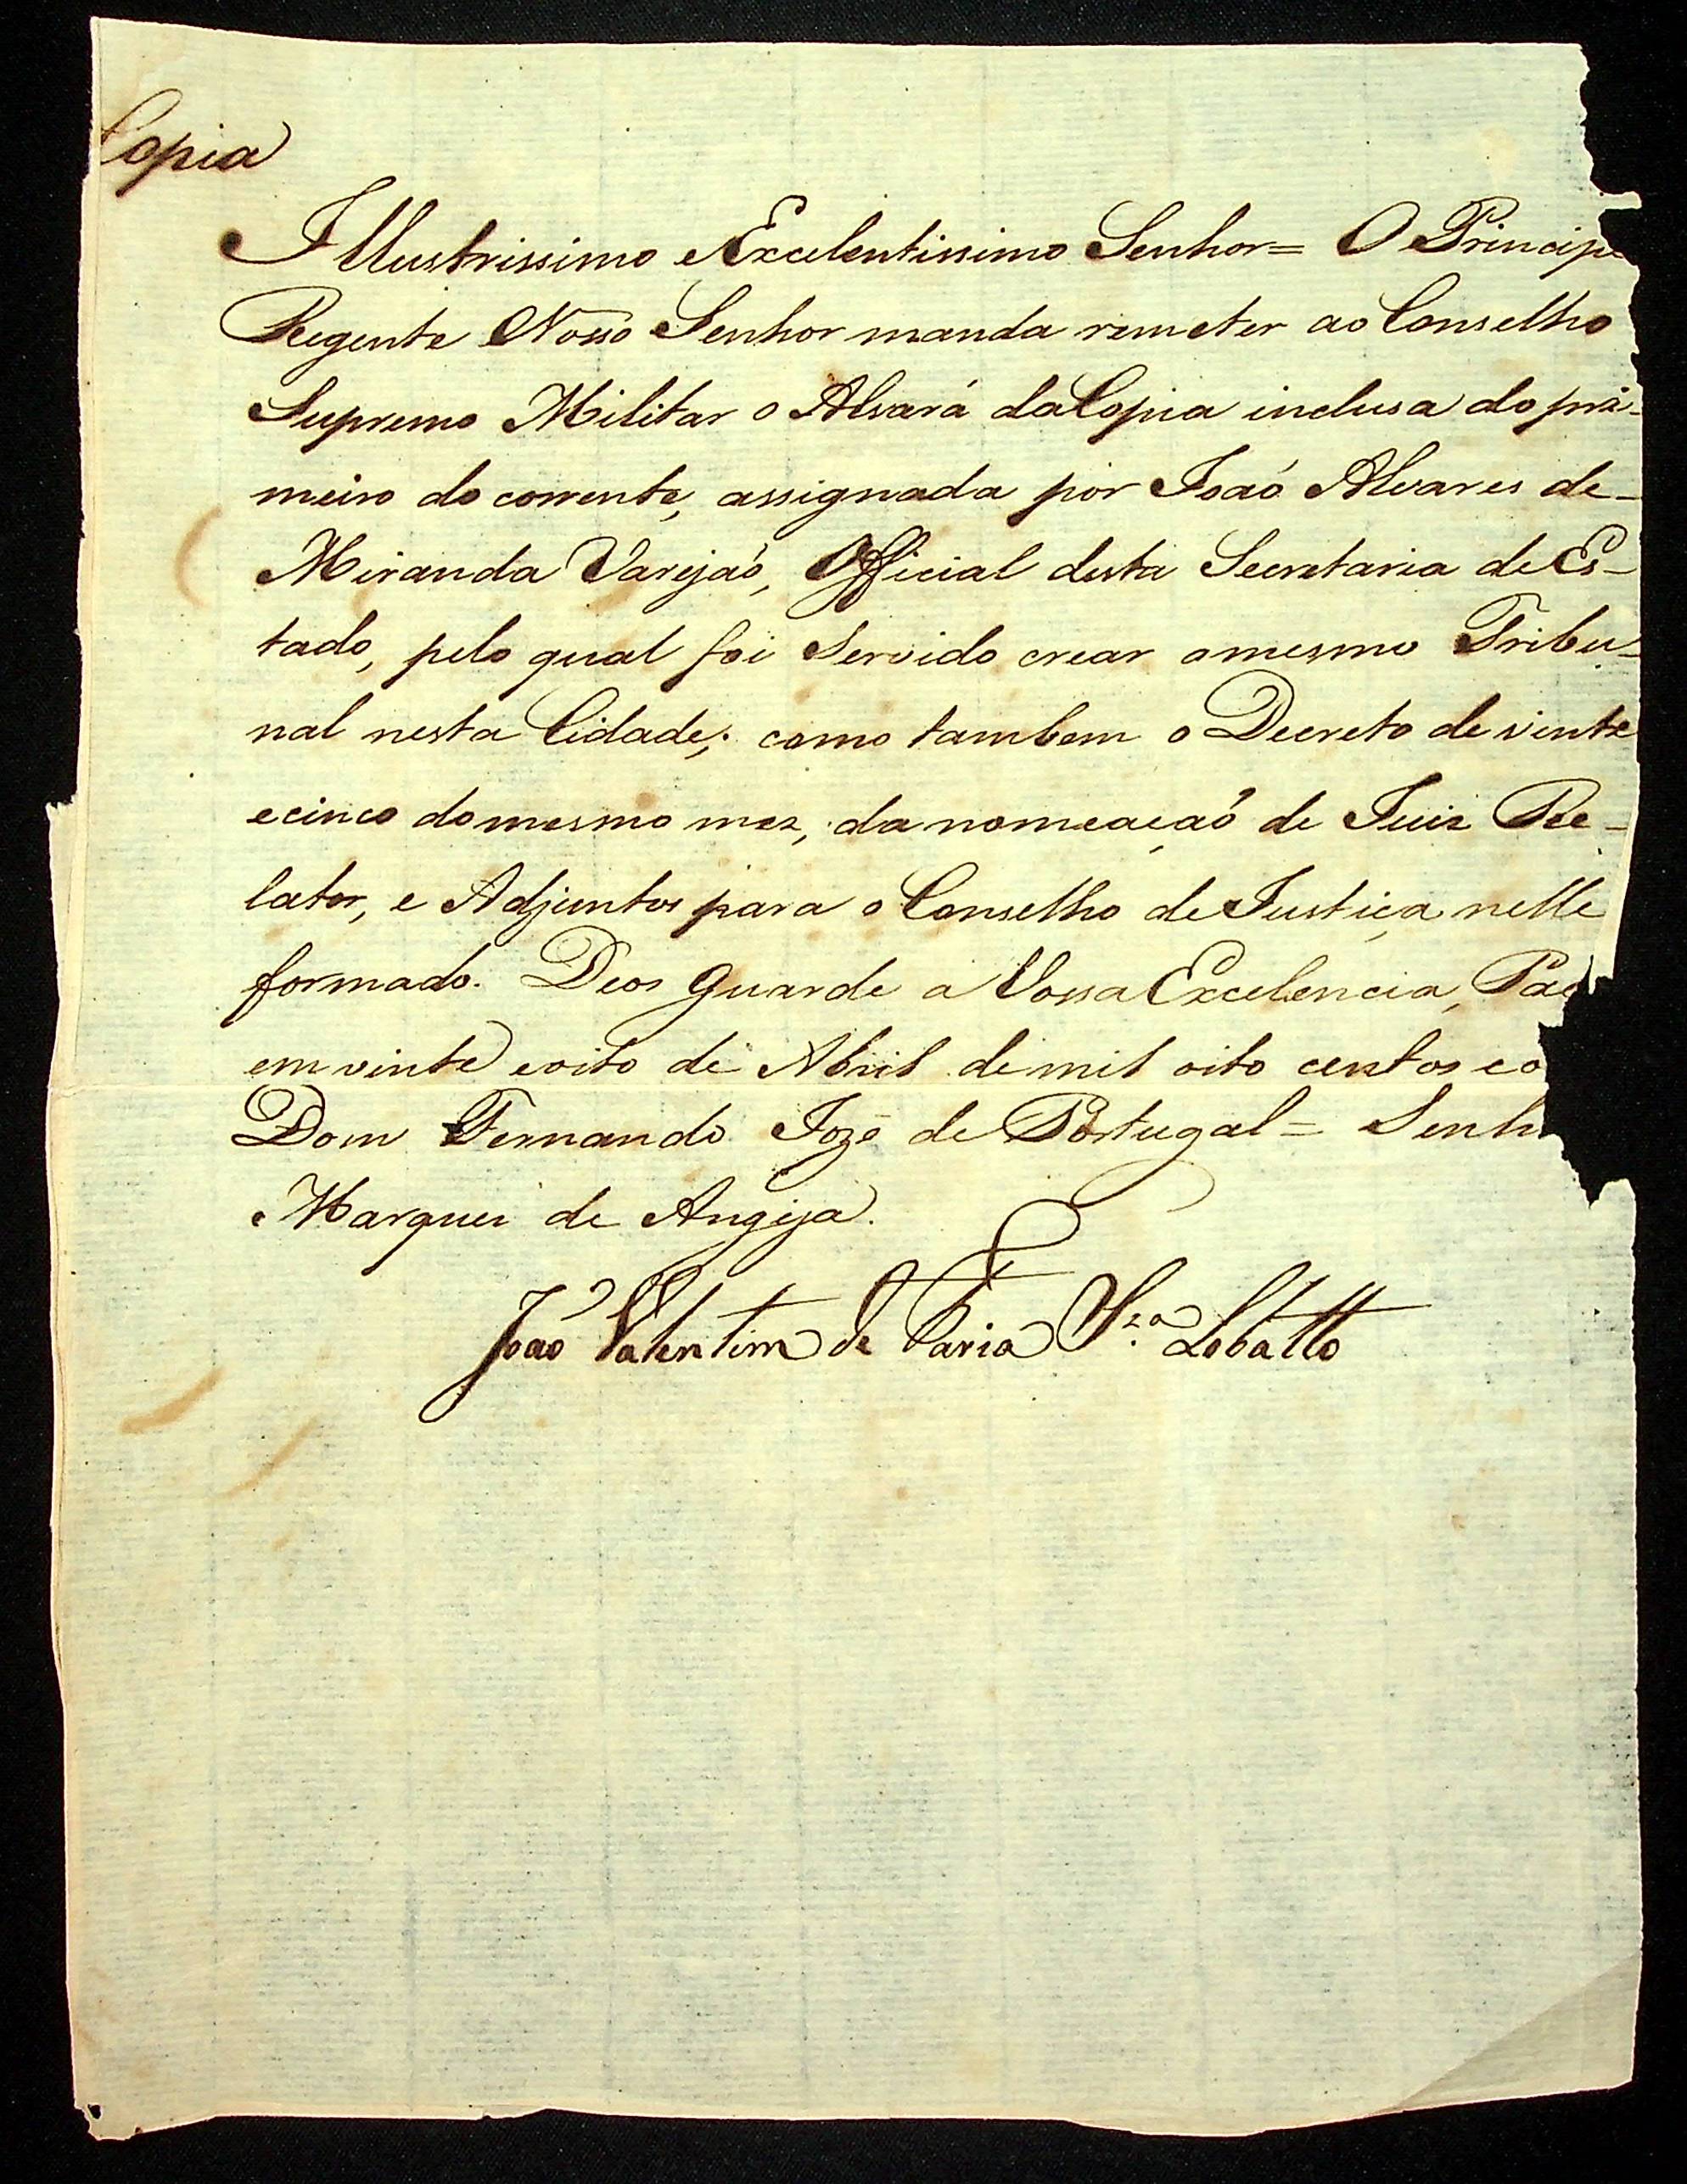 Copia
Illustrissimo e Excelentissimo Senhor= O Principe
Regente Nosso Senhor manda remeter ao Conselho
Supremo Militar o Alvará da Copia inclusa do pri-
meiro do corrente, assignada por Joaó Alvares de-
Miranda Varejaó, Official desta Secretaria de Es-
tado, pelo qual foi Servido crear o mesmo Tribu-
nal nesta Cidade; como tambem o Decreto de vinte
e cinco do mesmo mez, da nomeaçaó de Juiz Re-
lator, e Adjuntos para o Conselho de Justiça nelle
formado. Deos Guarde a Vossa Excelencia, Paç
em vinte e oito de Abril de mil oito centos e o
Dom Fernando Jozé de Portugal= Senh
Marquez de Angeja.
João Valentim de Faria Sza Lobatto